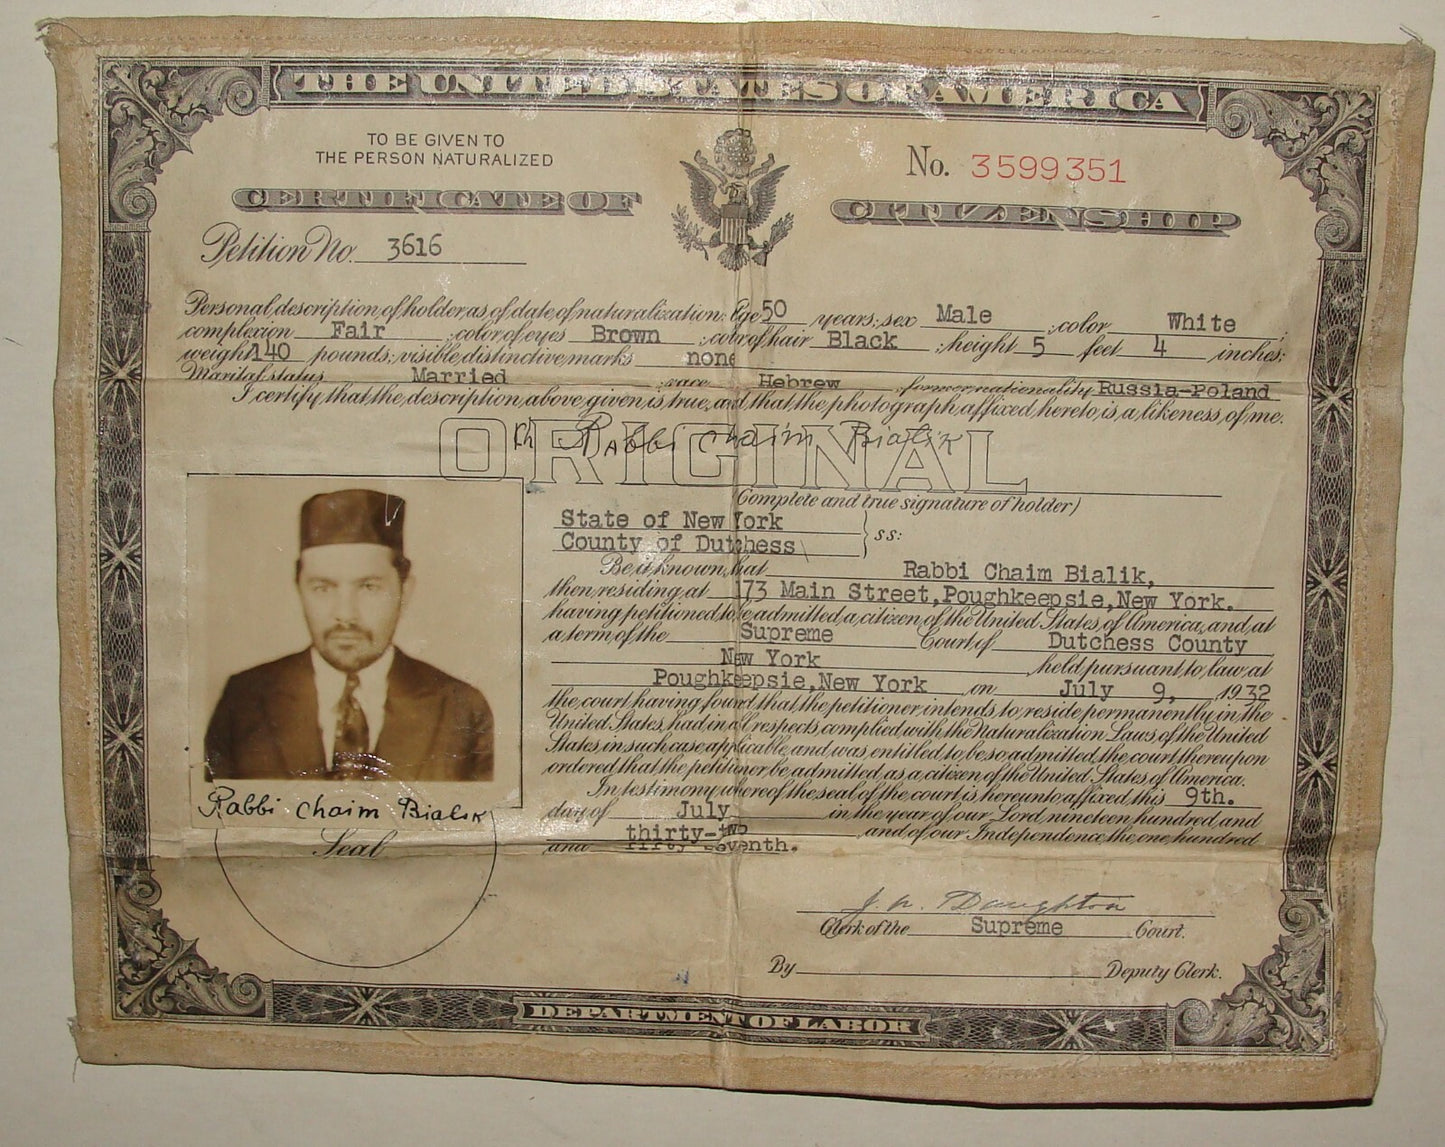 THE UNITED STATES OF AMERICA
TO BE GIVEN TO
THE PERSON NATURALIZED
No. 3599351
CERTIFICATE OF CITIZENSHIP
Petition No. 3616
Personal description of holder as of date of naturalization: Age 50 years; sex Male ; color White
complexion Fair ; color of eyes Brown ; color of hair Black ; height 5 feet 4 inches;
weight 140 pounds; visible distinctive marks none
Marital status Married ; race Hebrew former nationality Russia-Poland
I certify that the description above given is true, and that the photograph affixed hereto is a likeness of me.
ORIGINAL
Rabbi Chaim Bialik
(Complete and true signature of holder)
State of New York
County of Dutchess } ss:
Be it known, that Rabbi Chaim Bialik,
then residing at 173 Main Street,Poughkeepsie,New York.
having petitioned to be admitted a citizen of the United States of America, and at
a term of the Supreme Court of Dutchess County
New York held pursuant to law at
Poughkeepsie,New York on July 9, 1932
the court having found that the petitioner intends to reside permanently in the
United States, had in all respects complied with the Naturalization Laws of the United
States in such case applicable, and was entitled to be so admitted, the court thereupon
ordered that the petitioner be admitted as a citizen of the United States of America.
In testimony whereof the seal of the court is hereunto affixed this 9th.
day of July in the year of our Lord nineteen hundred and
thirty-two and of our Independence the one hundred
and fifty seventh.
Rabbi Chaim Bialik
Seal
Clerk of the Supreme Court.
By Deputy Clerk.
DEPARTMENT OF LABOR